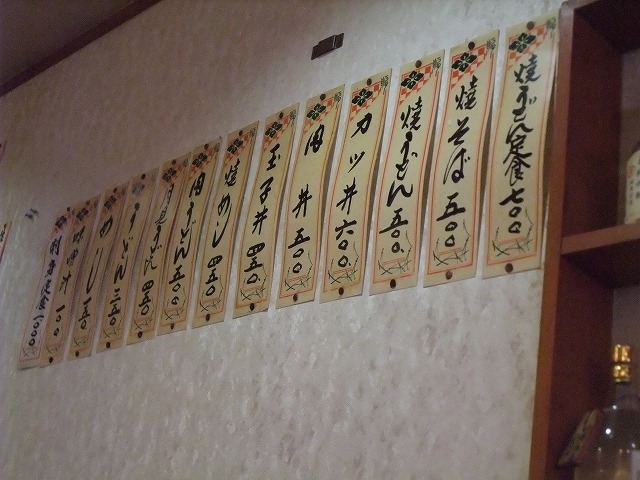 焼うどん定食 七〇〇
焼そば 五〇〇
焼うどん 五〇〇
カツ丼 六〇〇
肉丼 五〇〇
玉子丼 四五〇
焼めし 四五〇
肉うどん 五〇〇
月見うどん 四五〇
うどん 三五〇
めし 一五〇
味噌汁 一〇〇
刺身定食 一〇〇〇